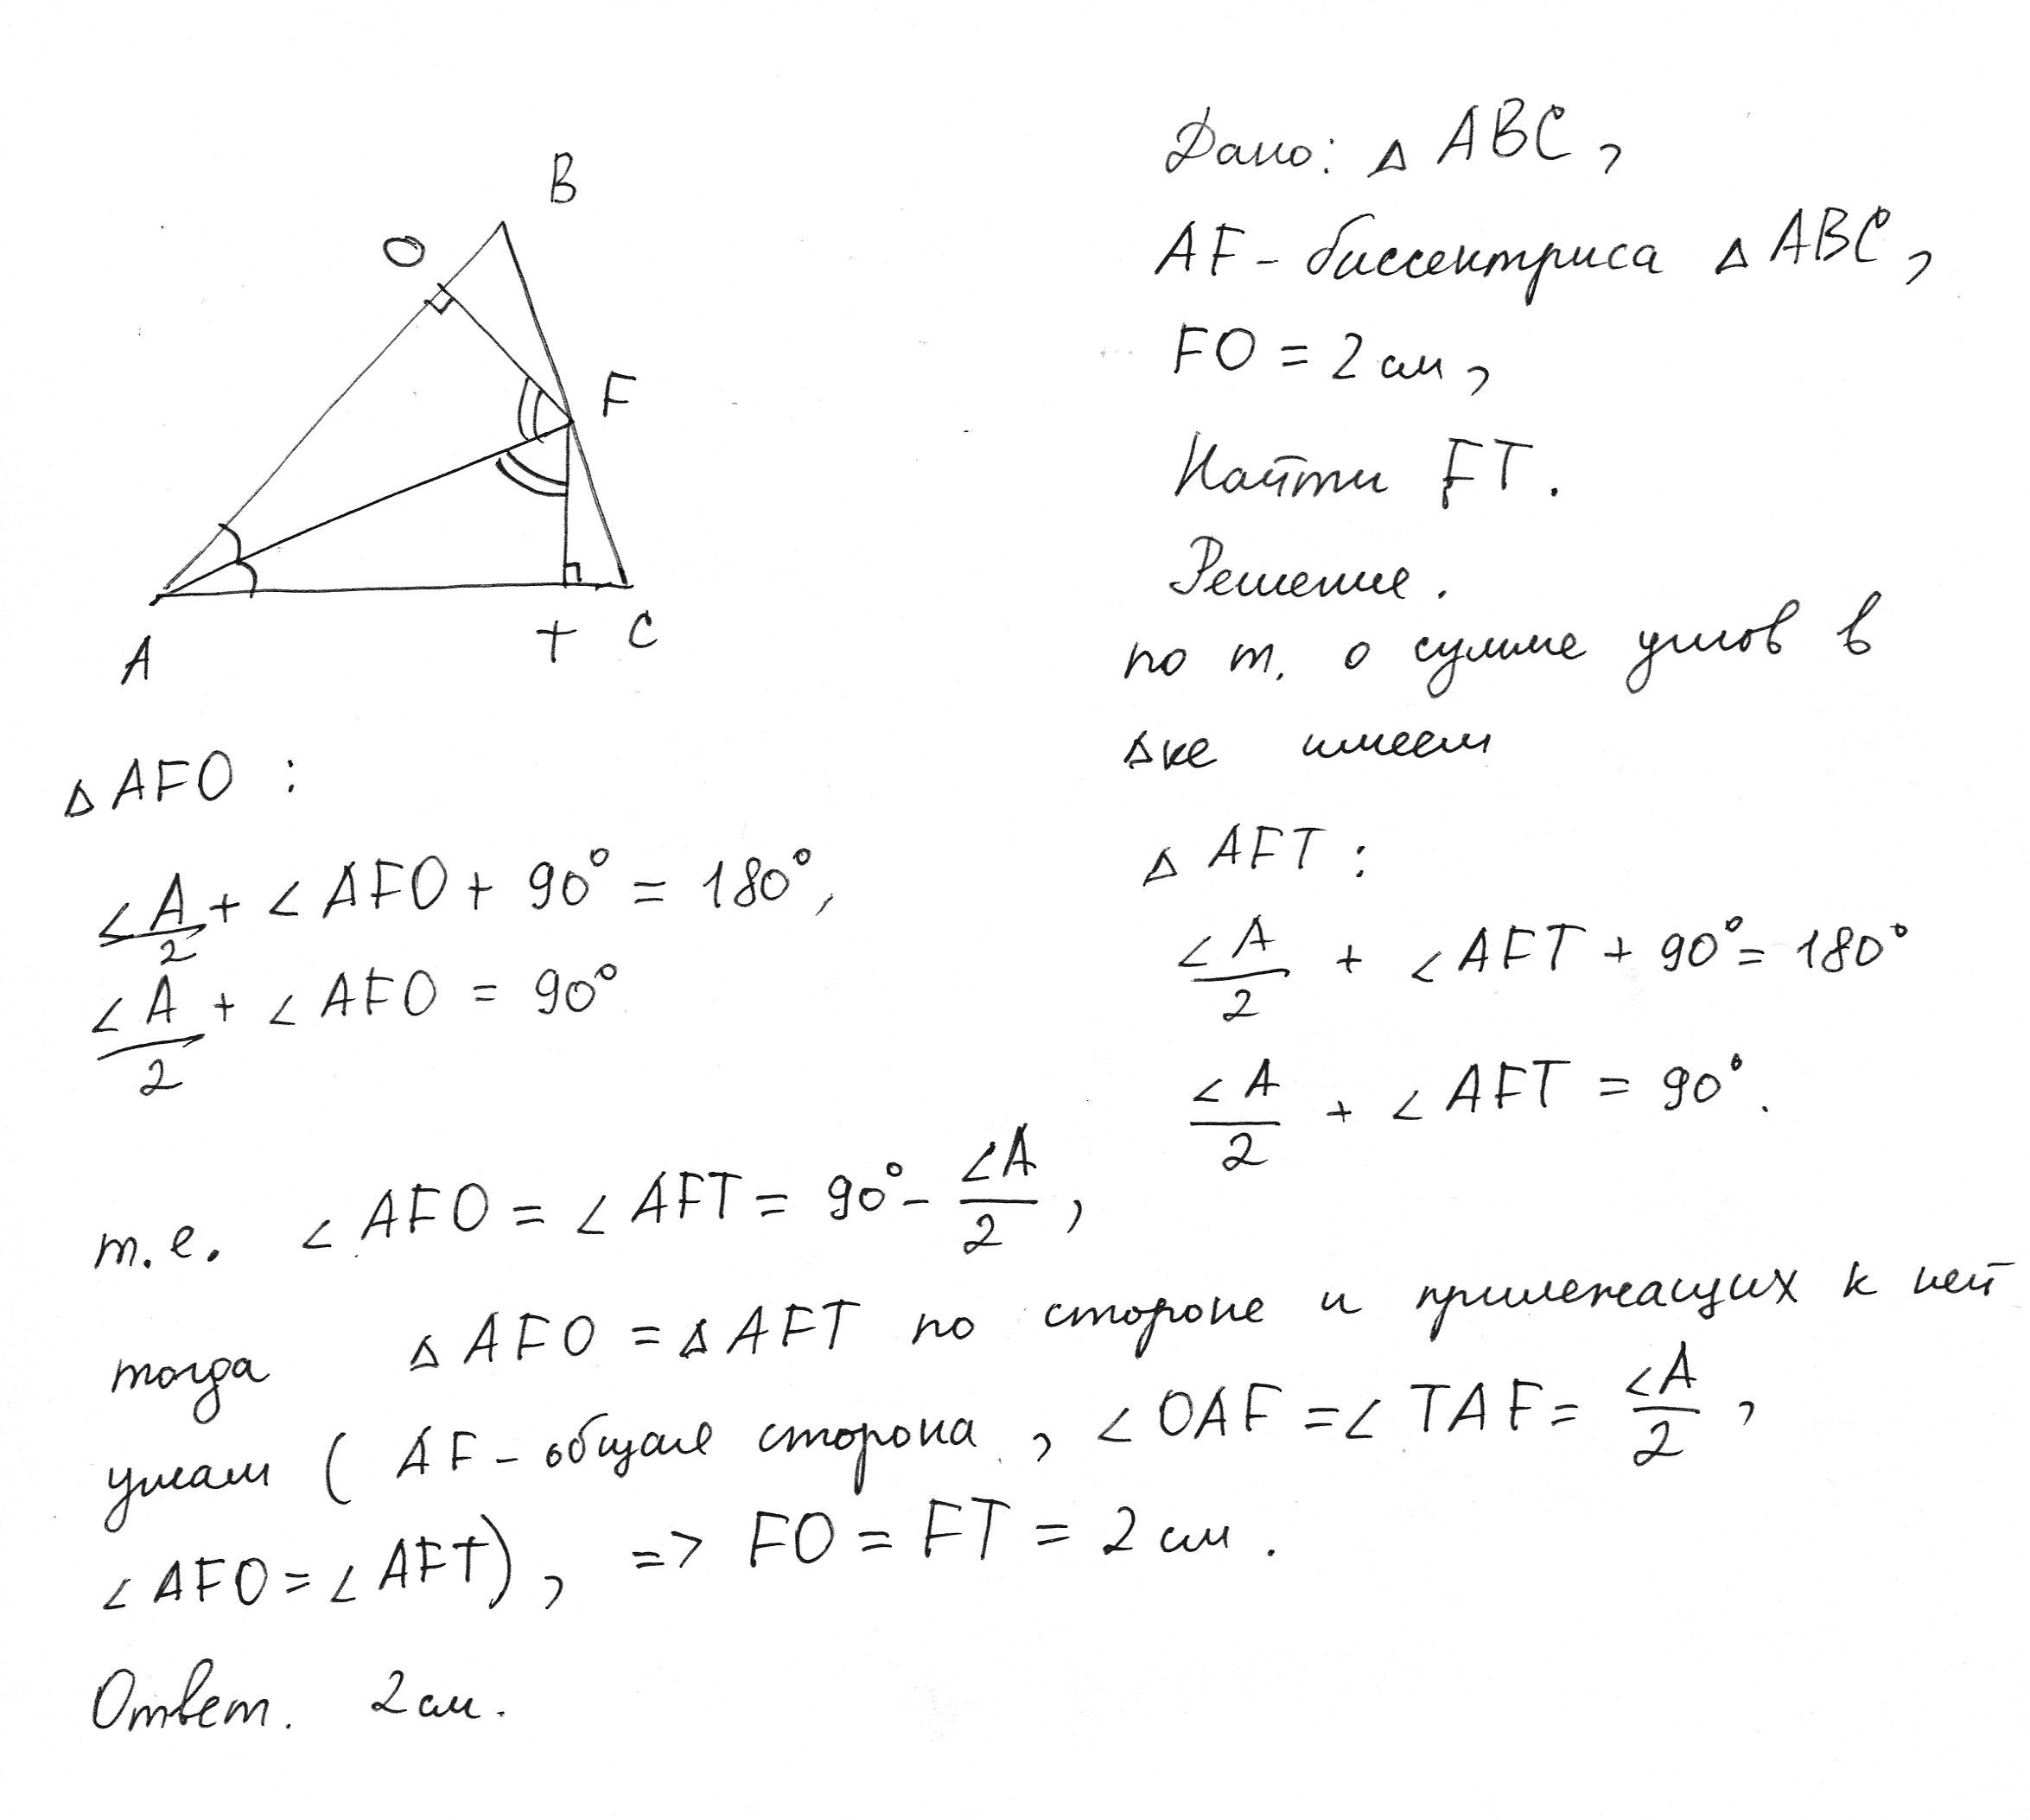 B
O
F
A
T
C
Дано: △ ABC,
AF - биссектриса △ ABC,
FO = 2 см,
Найти FT.
Решение.
по т. о сумме углов в
△ке имеем
△ AFO :
∠A/2 + ∠ AFO + 90° = 180°,
∠A/2 + ∠ AFO = 90°
△ AFT :
∠A/2 + ∠ AFT + 90° = 180°
∠A/2 + ∠ AFT = 90°.
т.е. ∠ AFO = ∠ AFT = 90° - ∠A/2,
тогда △ AFO = △ AFT по стороне и прилежащих к ней
углам ( AF - общая сторона, ∠ OAF = ∠ TAF = ∠A/2,
∠ AFO = ∠ AFT), => FO = FT = 2 см.
Ответ. 2 см.